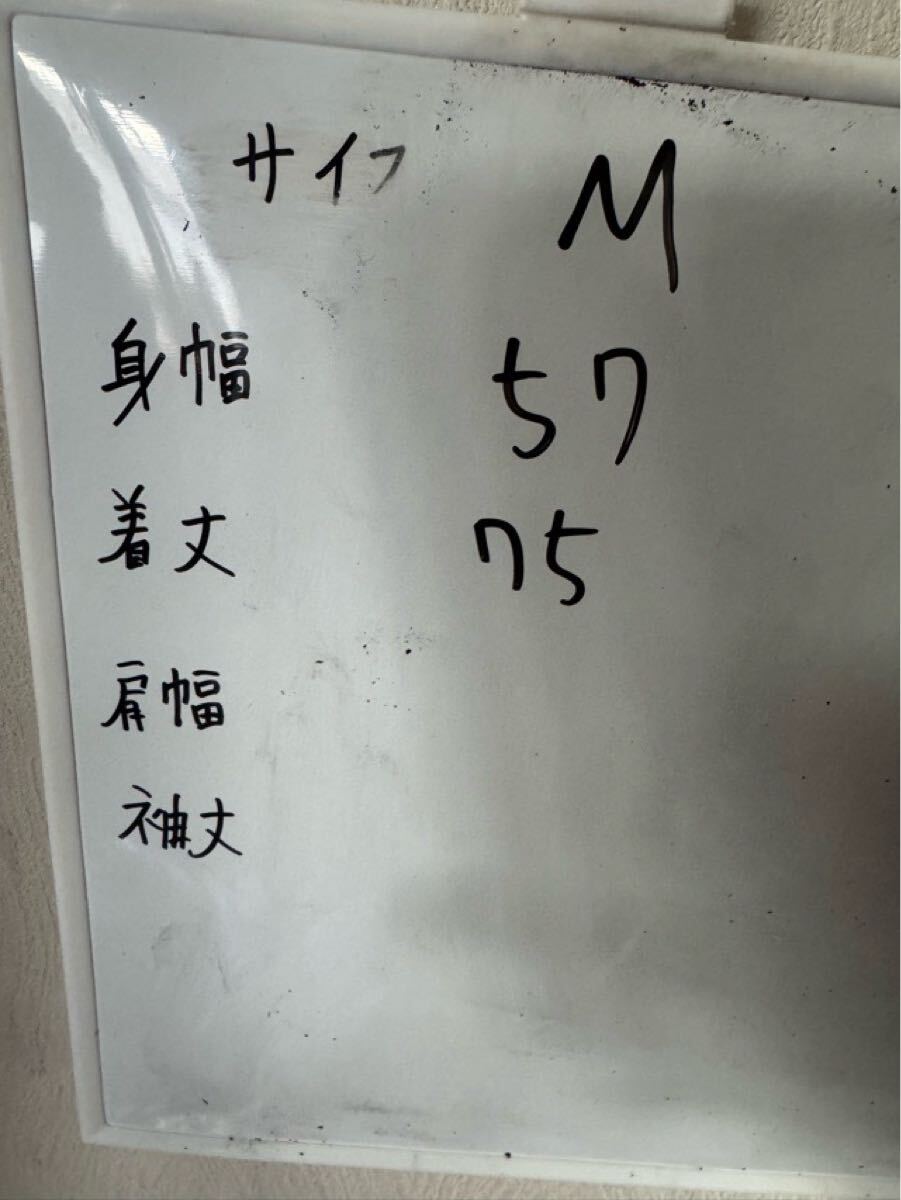 サイフ M
身幅 57
着丈 75
肩幅
袖丈